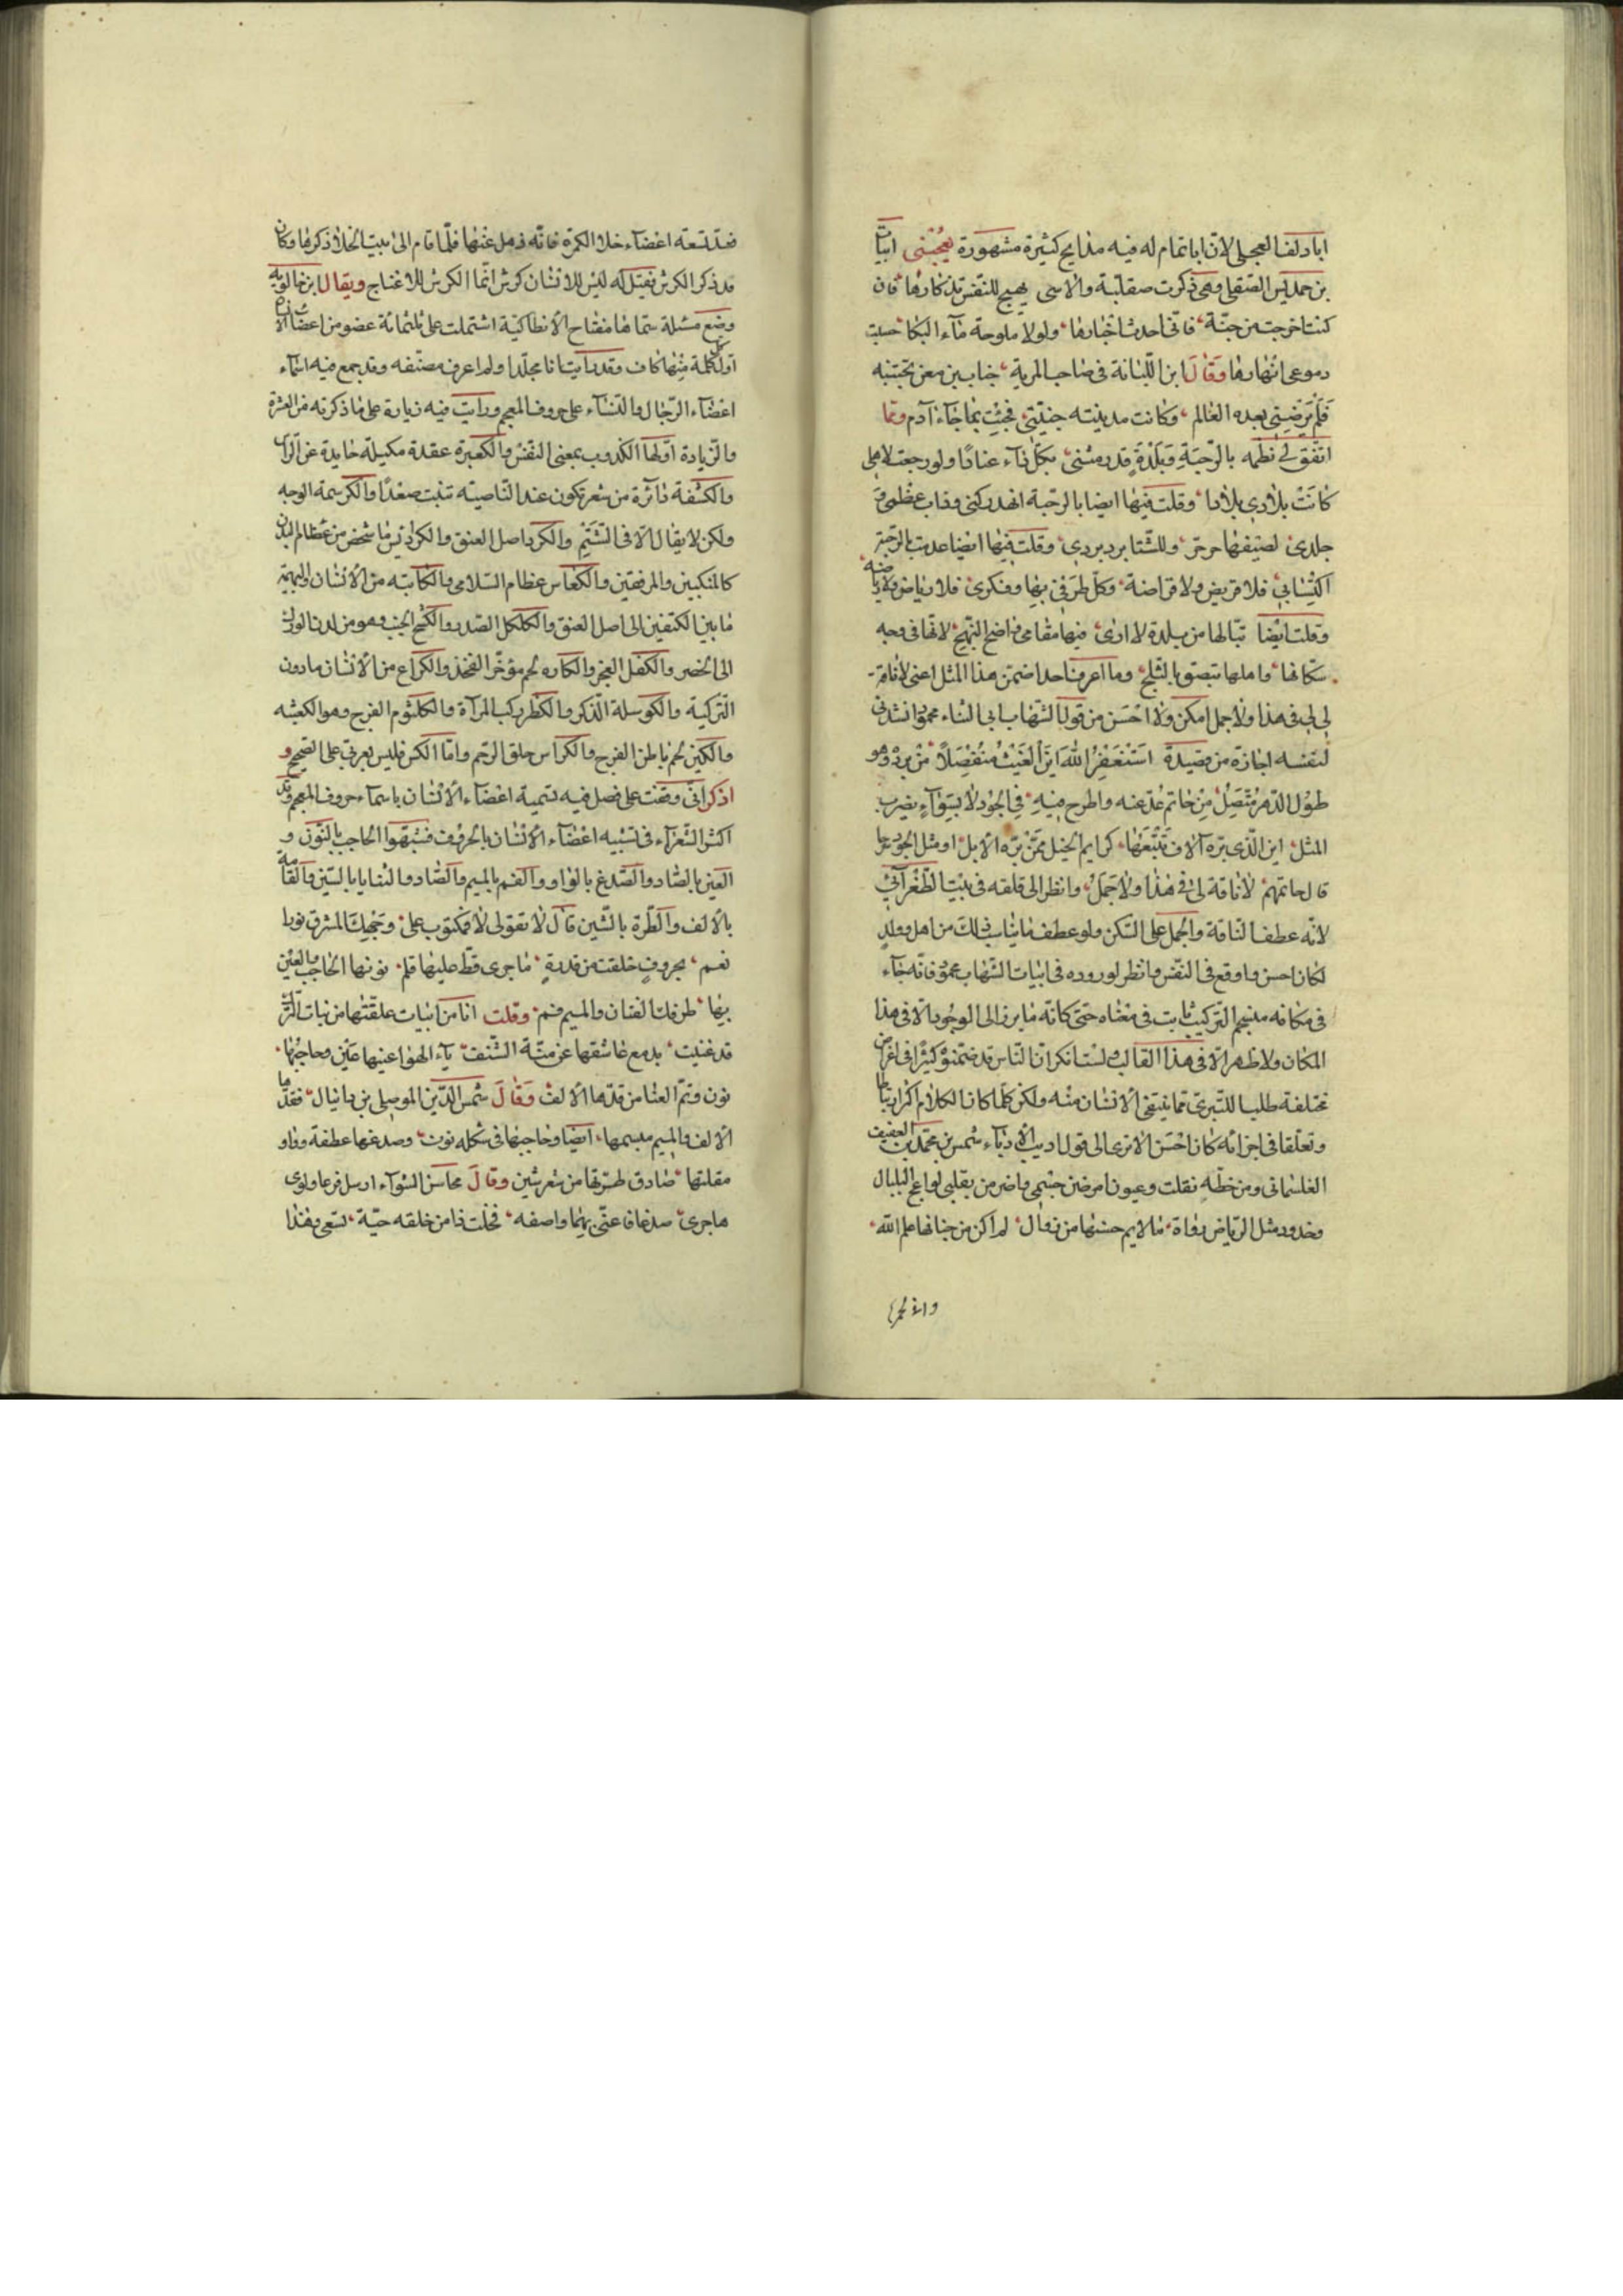 ابا دلف العجلى لانّ ابا تمام له فيه مدايح كثيرة مشهورة يعجبنى ابيات
بن حمديس الصقلى وهى ذكرت صقليّة والاسى يهيج للنفس تذكارها فان
كنت اخرجت من جنّة فانّى احدث اخبارها ولولا ملوحة مآء البكا حسبت
دموعى انهارها وقال ابن اللّبانة فى صاحب المرية
فلم ترضيتى بعده العالم وكانت مدينته جنّتى فجئت بما جآء آدم وممّا
اتّفق لى نظمه بالرّحبة وبلدة قد رمتنى بكلّ دآء عنادًا ولو رجعت لاهلى
كانت بلادى بلادا وقلت فيها ايضا بالرحبة انهدّ ركنى وذاب عظمى و
جلدى لصيفها حرّ حرّ وللشتا برد بردى وقلت فيها ايضا عدمت بالرّحبة
اكتسابى فلا قريض ولا قراضة وكلّ طرفى بها وفكرى فلا رياض ولا رياضه
وقلت ايضا تبّا لها من بلدة لا ارى فيها مقامى واضح النّهج لانّها فى وجه
سكّانها واهلها تبصق بالثّلج وما اعرف احدا ضمّن هذا المثل اعنى لا ناقة
لى فى هذا ولا جمل امكن ولا احسن من قول الشهاب ابى الثناء محمود انشدنى
لنفسه اجازة من قصيدة استغفر الله اين الغيث منفصلًا من برّه وهو
طول الدّهر متّصل من حاتم عدّ عنه واطرح فبه فى الجود لا بسوآء يضرب
المثل اين الّذى برّه الآلاف يتبعها كرايم الخيل ممّن برّه الابل او مثل الجود
قال حاتمهم لا ناقة لى فى هذا ولا جمل وانظر الى قلقه فى بيت الطّغرآئى
لانّه عطف النّاقة والجمل على السّكن ولو عطف ما يناسب ذلك من اهل وولدٍ
لكان احسن واوقع فى النّفس وانظر لوروده فى ابيات الشّهاب محمود فانّه جآء
فى مكانه منسجم التركيب ثابت فى معناه حتّى كانّه ما برز الى الوجود الّا فى هذا
المكان ولا ظهر الّا فى هذا القالب ولست انكر انّ النّاس قد ضمّنوه كثيرًا فى اغراض
مختلفة طلبا للتّبرّى ممّا ينتقى الانسان منه ولكن كلّما كان الكلام اكثر ارتباطا
وتعلّقا فى اجزائه كان احسن الا ترى الى قول اديب الادبآء شمس بن محمّد بن العفيف
التلسمانى ومن خطّه نقلت وعيون امرضن جسمى واضرمن بقلبى لواعج البلبال
وخدود مثل الرّياض زواهٍ ما لايم حسنها من زوال لم اكن من جناتها علم الله
وانى لحرها
فعدّ تسعة اعضآء خلا الكمرة فانّه ذهل عنها فلمّا قام الى بيت الخلا ذكرها وكان
قد ذكر الكرش فقيل له ليس للانسان كرش انّما الكرش للاغنام ويقال ابن خالويه
وضع مسئلة سمّاها مفتاح الانطاكيّة اشتملت على ثلثمائة عضو من اعضاء الانسان
اوّل كلّ كلمة منها كاف وقد رايت انا مجلّدا ولم اعرف مصنّفه وقد جمع فيه اسماء
اعضآء الرّجال والنّسآء على حروف المعجم ورايت فيه زيادة على ما ذكرته من العشرة
والزّيادة اوّلها الكذوب بمعنى النفس والكعبرة عقدة مكبلة حايدة عن الراس
والكشفة دآئرة من شعر تكون عند النّاصية تنبت صعدًا والكرسمة الوجه
ولكن لا يقال الّا فى الشّتم والكرد اصل العنق والكراديس ما شخص من عظام البدن
كالمنكبين والمرفقين والكعاس عظام السّلامى والكاثبة من الانسان والبهيمة
ما بين الكتفين الى اصل العنق والكلكل الصّدر والكشح الجنب وهو من لدن الورك
الى الخصر والكفل العجز والكاره لحم مؤخّر الفخذ والكراع من الانسان ما دون
التركبة والكوسلة الذّكر والكظر ركب المرآة والكلثوم الفرج وهو الكعثبه
والكين لحم باطن الفرج والكراس حلق الرّحم وامّا الكس فليس بعربىّ على الصّحيح و
اذكر انّى وقفت على فصل فيه تسمية اعضآء الانسان باسمآء حروف المعجم وقد
اكثر الشّعرآء فى تشبيه اعضآء الانسان بالحروف فشبّهوا الحاجب بالنّون و
العين بالصّاد والصّدغ بالواو والفم بالميم والصّاد والثنايا بالسّين والقامة
بالالف والطّرة بالشّين قال لا تقولى لا فمكتوب على وجهك المشرق نورا
نعم بحروفٍ خلقت من قدرةٍ ما جرى قطّ عليها قلم نونها الحاجب والعين
بها طرفك الفتان والميم فم وقلت انا من ابيات علقتها من نبات التّرك
قد غنيت بدمع عاشقها عن منّة الشّنف يآء الهوا عينها عين وحاجبها
نون وتمّ العنا من قدّها الالف وقال شمس الدّين الموصلى بن دانيال فقدّها
الالف والميم مبسمها ايضا وحاجبها فى شكله نون وصدغها عطفة وواو
مقلتها صاد وطرّتها من شعر شين وقال محاسن الشوآء ارسل فرعا ولوى
هاجرى صدغا فاعيى بهما واصفه فخلت ذا من خلفه حيّة تسعى وهذا